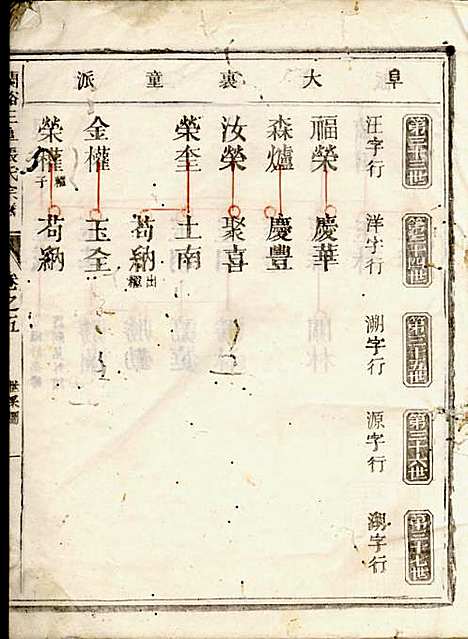 阜大裏童派
第三十三世
汪字行
福榮
森爐
汝榮
榮奎
金權
榮權 繼子
第三十四世
洋字行
慶華
慶豐
聚喜
土南
苟納 出繼
玉全
苟納
第三十五世
湖字行
第三十六世
源字行
第三十七世
字行
卷之五
世系圖